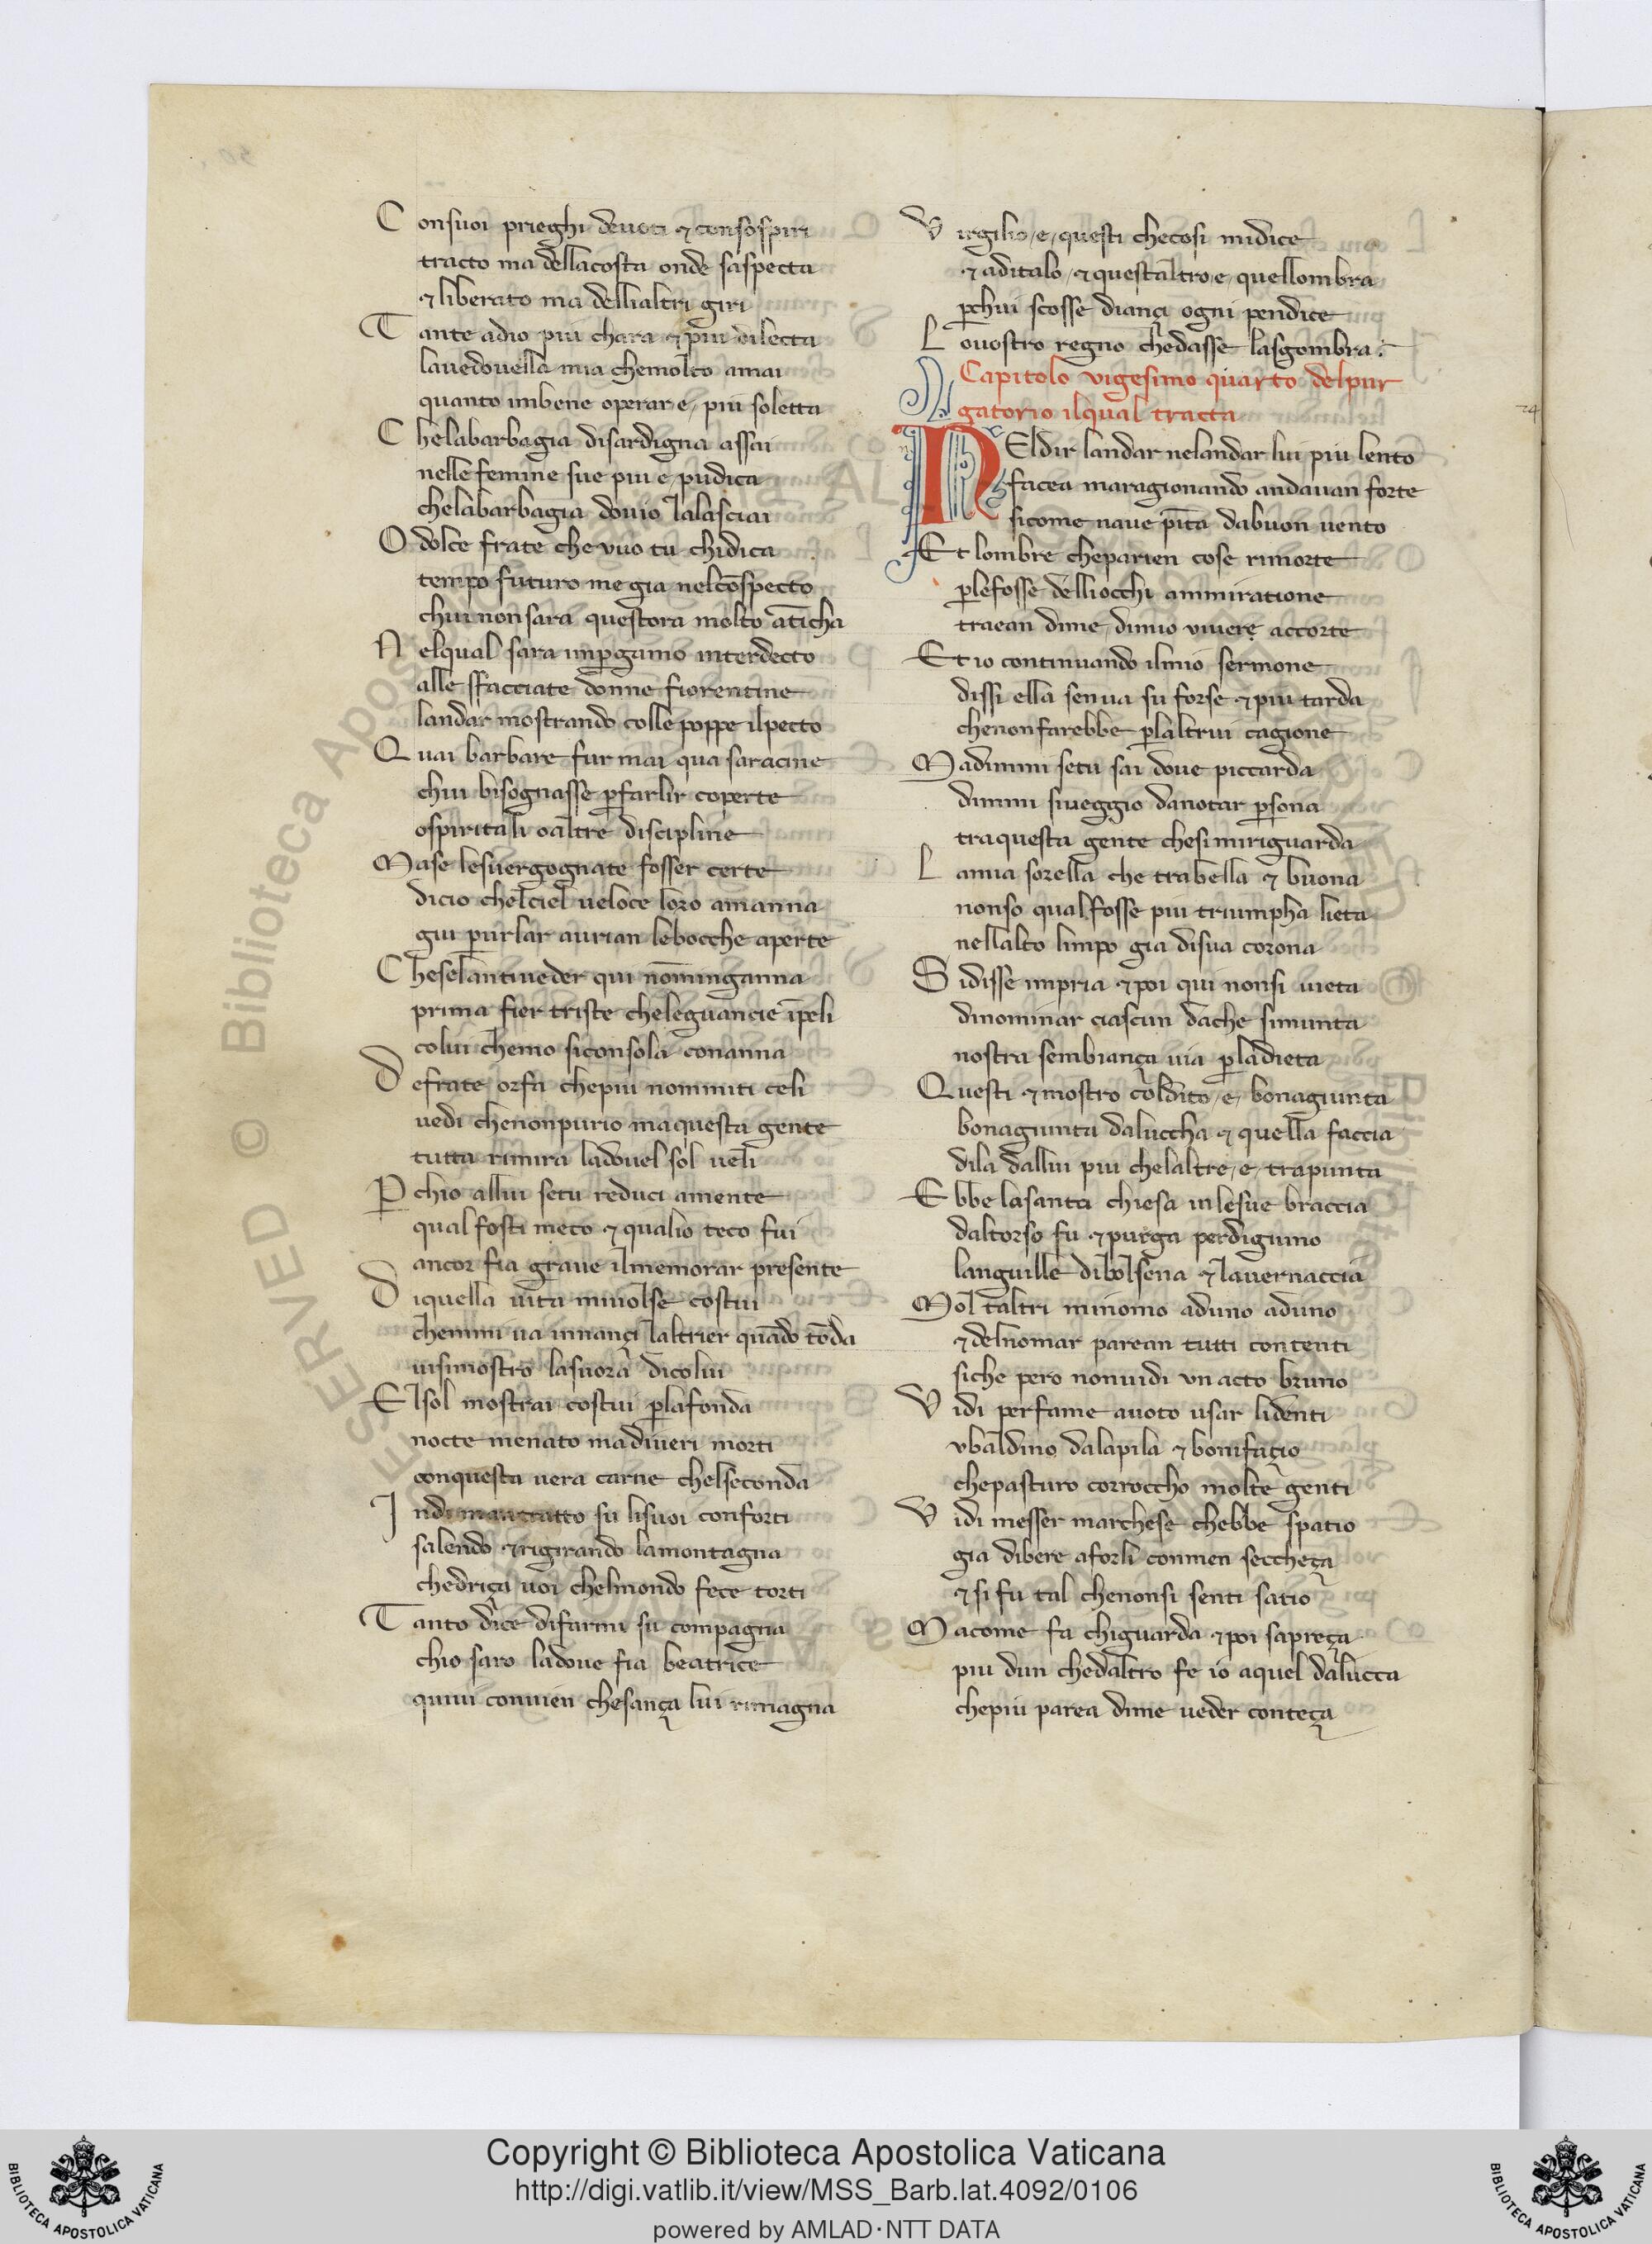 Consuoi prieghi devoti ⁊ consospiri
tracto ma dellacosta onde saspecta
⁊ liberato ma dellialtri giri
Tante adio piu chara ⁊ piu dilecta
lavedovella mia chemolto amai
quanto imbene operar e piu soletta
Chelabarbagia disardigna assai
nelle femine sue piu e pudica
chelabarbagia dovio lalasciai
O dolce frate che vuo tu chidica
tempo futuro me gia nelcōspecto
chui non sara questora molto āticha
Nelqual sara inꝑgamo interdecto
alle sfacciate donne fiorentine
landar mostrando colle poppe ilpecto
Quai barbare fur mai qua saracine
chui bisognasse ꝑfarlir coperte
ospiritali oaltre discipline
Mase lesvergognate fosser certe
dicio chelciel veloce loro amanna
gia ꝑurlar aurian lebocche aperte
Cheselantiveder qui nōminganna
prima fier triste cheleguancie īpeli
colui chemo siconsola conanna
De frate or fa chepiu nonmiti celi
vedi chenonpurio maquesta gente
tutta rimira ladovel sol veli
Ꝑchio allui setu reduci amente
qual fosti meco ⁊ qualio teco fui
ancor fia grave ilmemorar presente
Diquella vita mivolse costui
chemmi va innançi laltrier quādo tōda
visimostro lasuora dicolui
Elsol mostrai costui ꝑlafonda
nocte menato madiveri morti
conquesta vera carne chelseconda
Indi mantratto su lisuoi conforti
salendo ⁊rigirando lamontagna
chedriça voi chelmondo fece torti
Tanto dice difarmi su compagna
chio saro ladove fia beatrice
quivi convien chesança lui rimagna
Virgilio /e/ questi checosi midice
⁊ aditalo ⁊ questaltro e quellombra
ꝑchui scosse diançi ogni pendice
Lovostro regno chedasse lasgombra.
Capitolo vigesimo quarto delpur
gatorio ilqual tracta
24
NEldir landar nelandar lui piu lento
facea maragionando andavan forte
sicome nave pīta dabuon vento
Et lombre cheparien cose rimorte
ꝑlefosse delliocchi ammiratione
traean dime dimio vivere accorte
Et io continuando ilmio sermone
dissi ella senva su forse ⁊ piu tarda
chenonfarebbe ꝑlaltrui cagione
Madimmi setu sai dove piccarda
dimmi siveggio danotar ꝑsona
traquesta gente chesimiriguarda
Lamia sorella che trabella ⁊ buona
nonso qualfosse piu triumpha lieta
nellalto limpo gia disua corona
Sidisse impria ⁊ poi qui nonsi vieta
dinominar ciascun dache simunta
nostra sembiança via ꝑladieta
Questi ⁊ mostro coldito /e/ bonagiunta
bonagiunta daluccha ⁊ quella faccia
dila dallui piu chelaltre /e/ trapunta
Ebbe lasanta chiesa inlesue braccia
daltorso fu ⁊ purga perdigiuno
languille dibolsena ⁊ lavernaccia
Moltaltri minomo aduno aduno
⁊ delnomar parean tutti contenti
siche pero nonvidi vn acto bruno
Vidi perfame avoto vsar lidenti
vbaldino dalapila ⁊ bonifaçio
chepasturo corroccho molte genti
Vidi messer marchese chebbe spatio
gia dibere aforli conmen seccheça
⁊ si fu tal chenonsi senti satio
Macome fa chiguarda ⁊ poi sapreça
piu dun chedaltro fe io aquel dalucca
chepiu parea dime veder conteça
Copyright © Biblioteca Apostolica Vaticana
http://digi.vatlib.it/view/MSS_Barb.lat.4092/0106
powered by AMLAD·NTT DATA
BIBLIOTECA APOSTOLICA VATICANA
BIBLIOTECA APOSTOLICA VATICANA